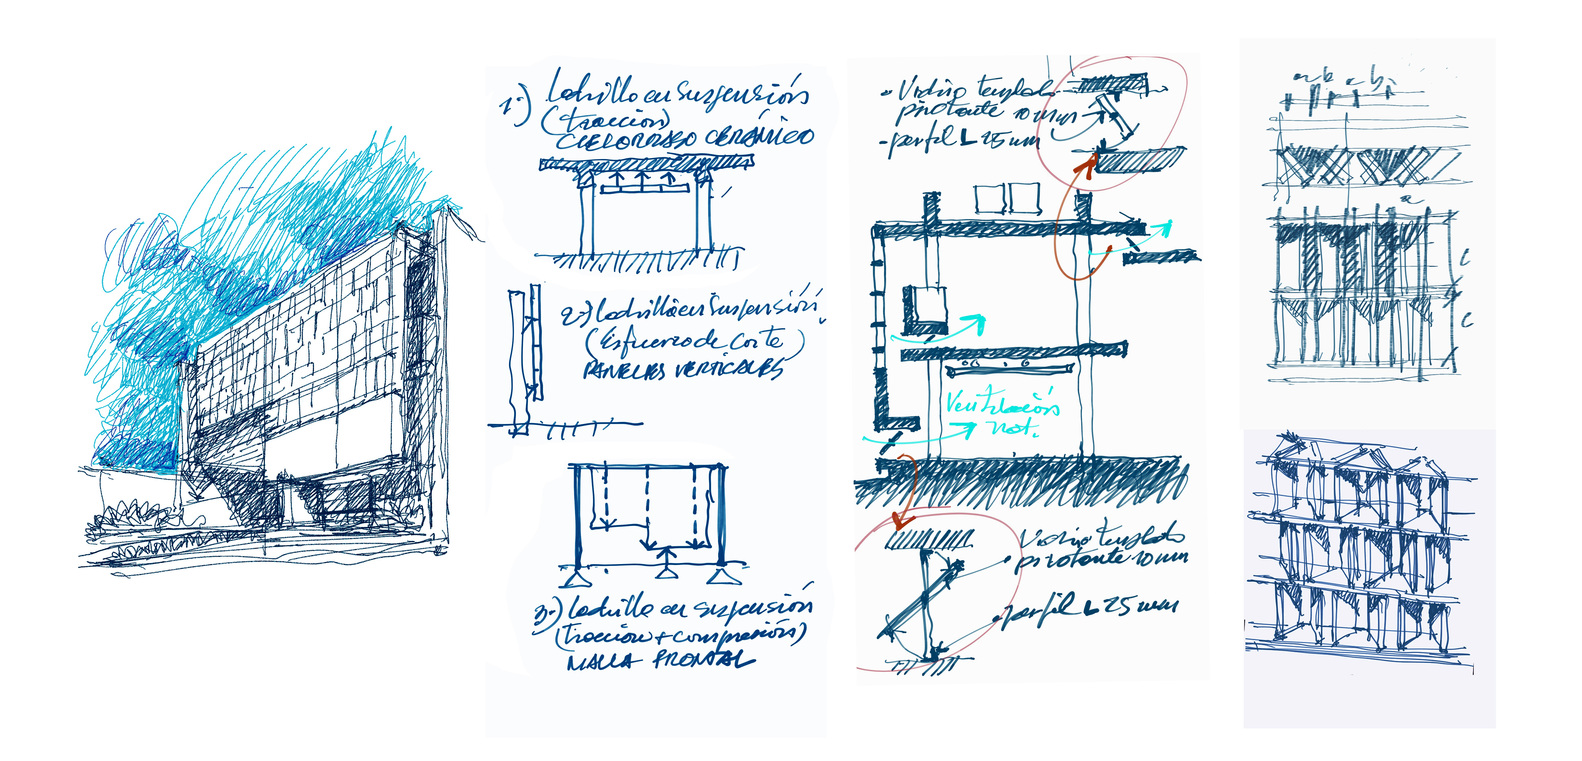 1-) Ladrillo en suspensión
(tracción)
CIELORRASO CERÁMICO
2-) Ladrillo en suspensión
(Esfuerzo de corte)
PANELES VERTICALES
3-) Ladrillo en suspensión
(tracción + compresión)
MALLA FRONTAL
- Vidrio templado
pivotante 10 mm
- perfil L 25 mm
Ventilación
nat.
Vidrio templado
pivotante 10 mm
- perfil L 25 mm
a b a b
a
c
c